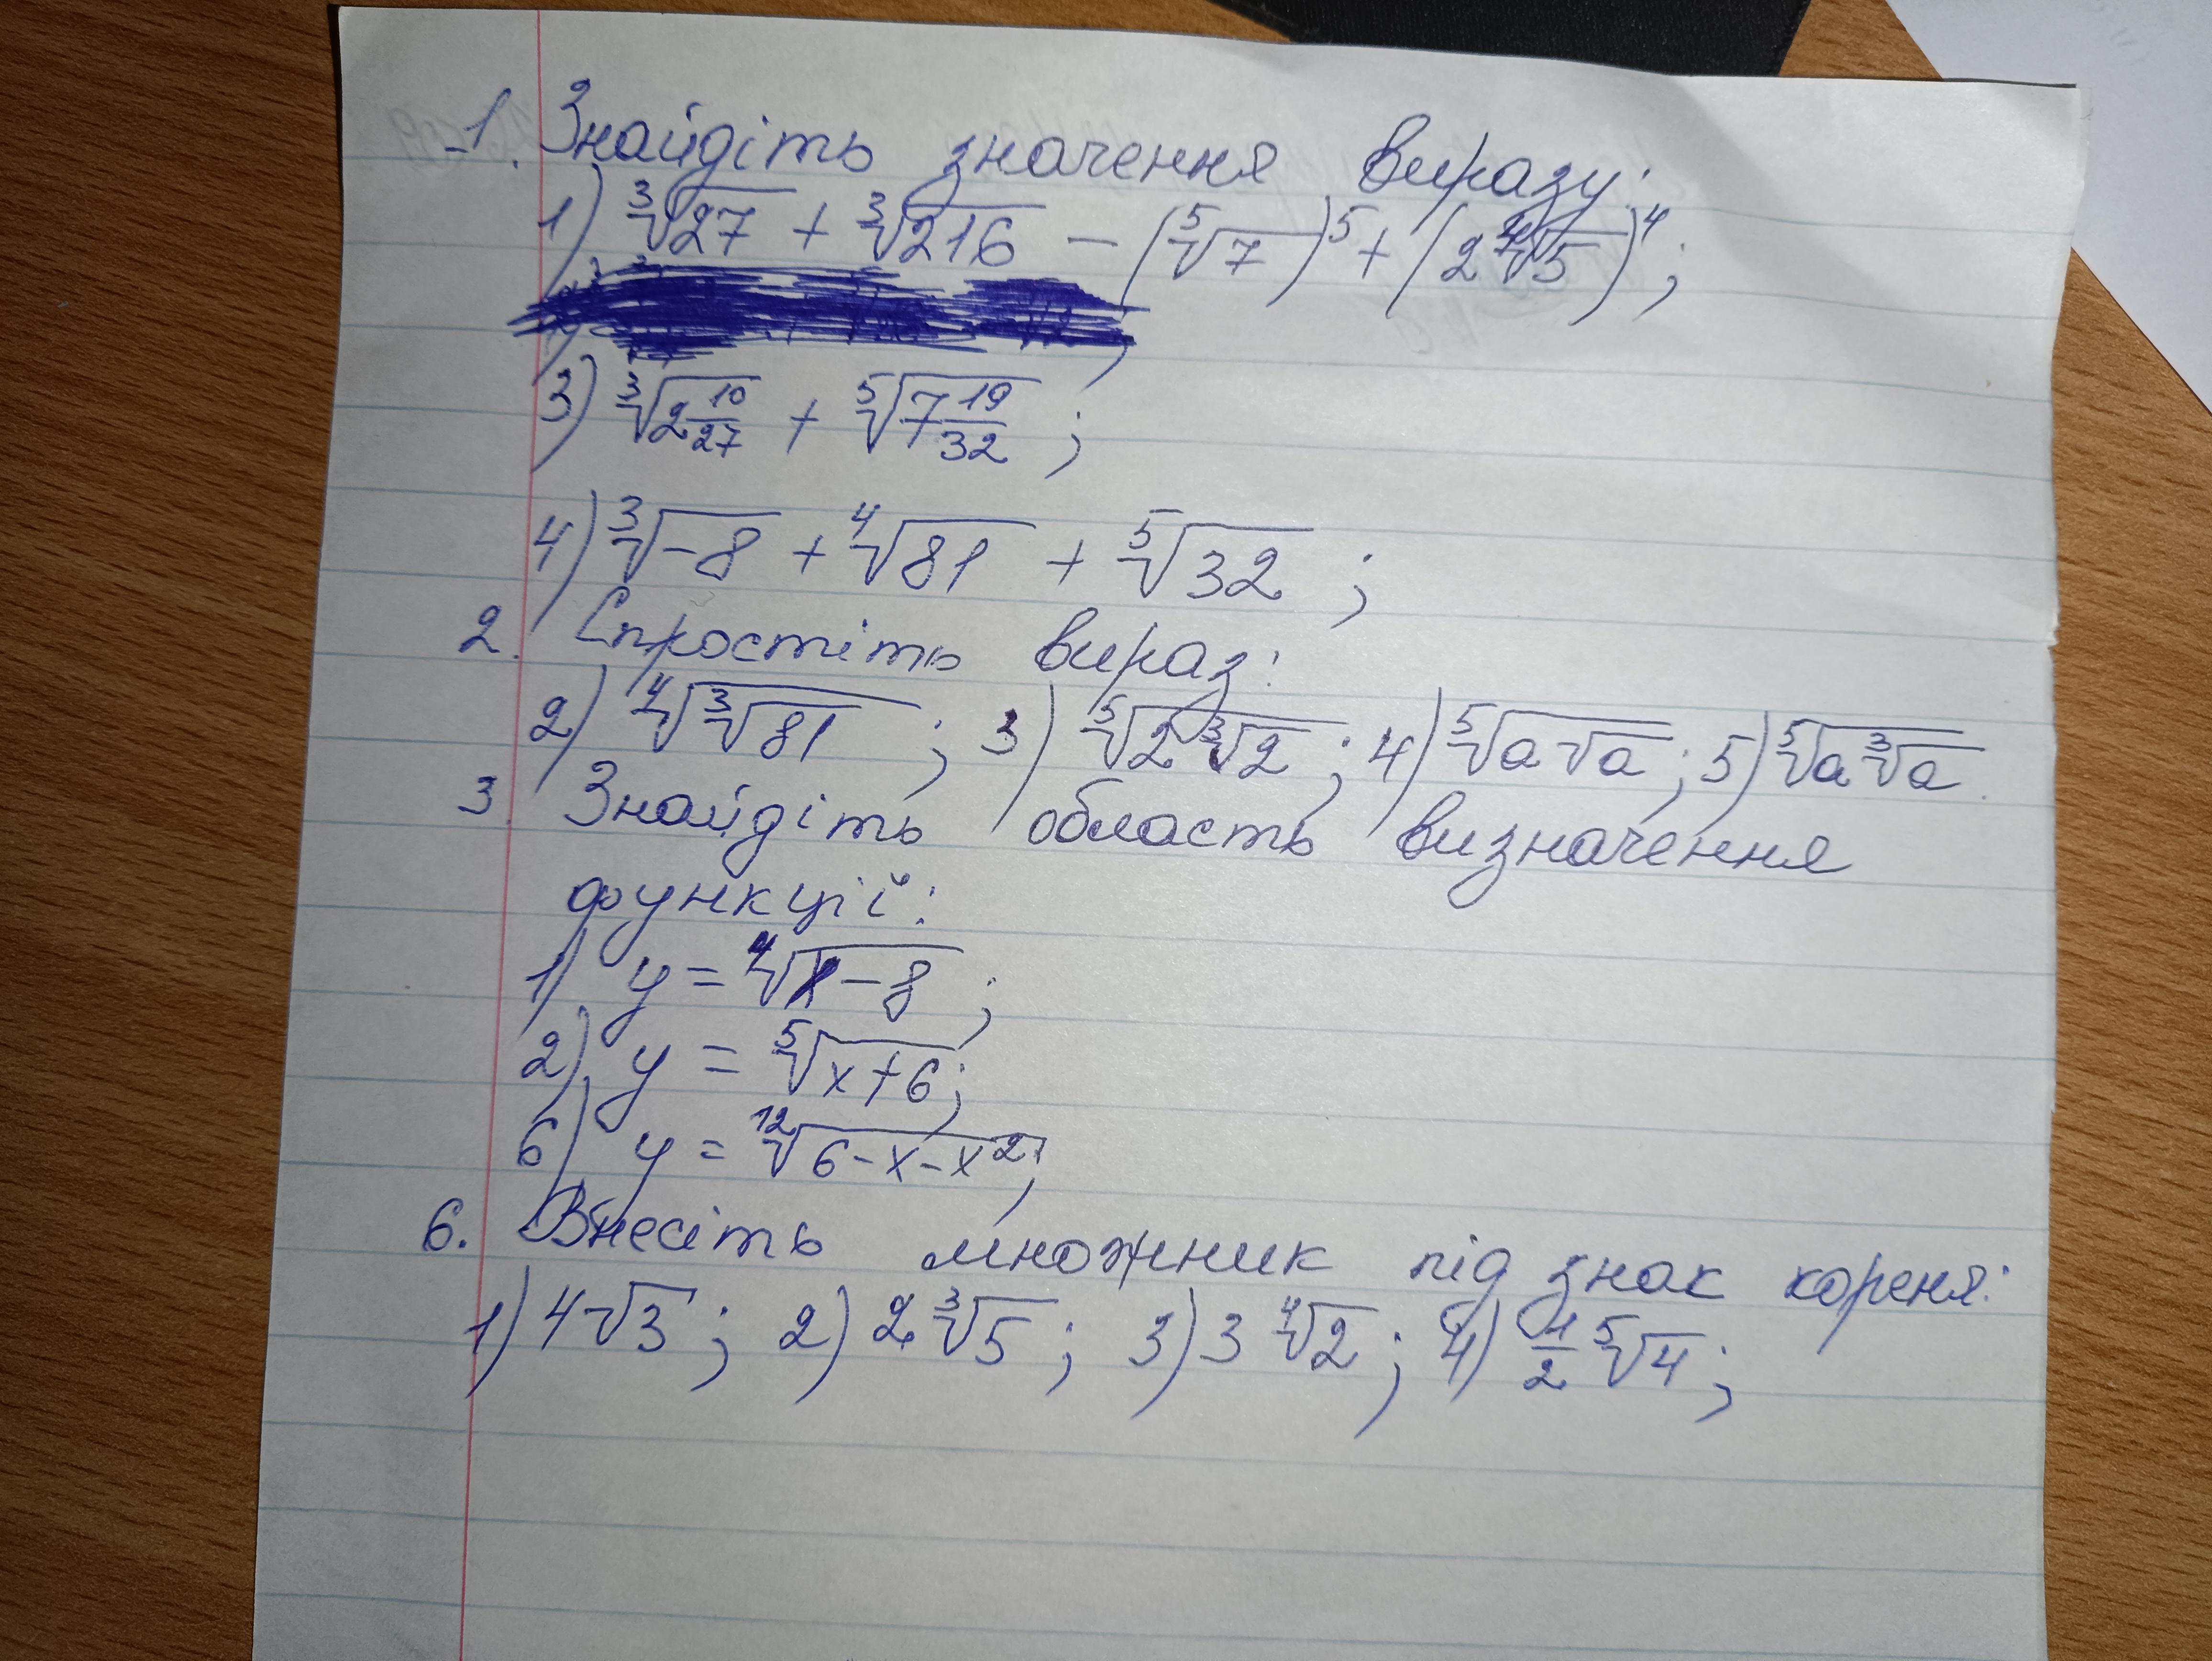 1. Знайдіть значення виразу:
1) ∛27 + ∛216 − (⁵√7)⁵ + (2⁴√5)⁴;
3) ∛(2 10/27) + ⁵√(7 19/32);
4) ∛−8 + ⁴√81 + ⁵√32;
2. Спростіть вираз:
2) ⁴√(∛81); 3) ⁵√(2∛2); 4) ⁵√(a√a); 5) ⁵√(a∛a).
3. Знайдіть область визначення
функції:
1) y = ⁴√(x−8);
2) y = ⁵√(x+6);
6) y = ¹²√(6−x−x²);
6. Внесіть множник під знак кореня:
1) 4√3; 2) 2∛5; 3) 3⁴√2; 4) 1/2 ⁵√4;